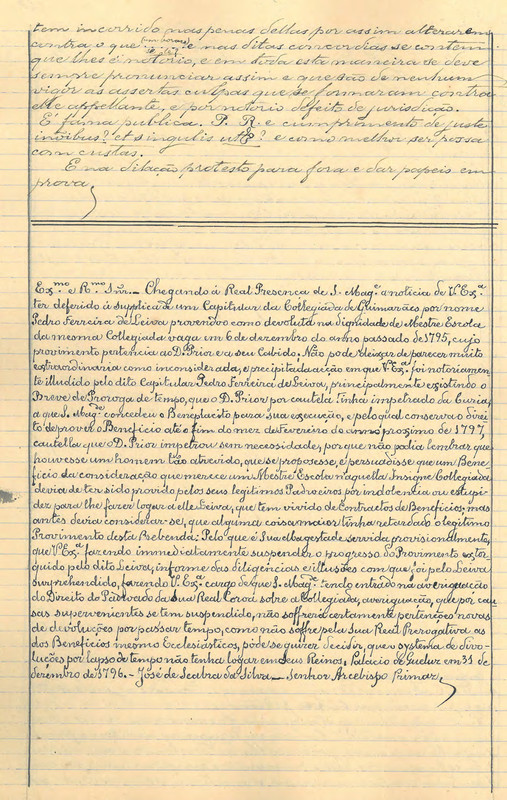 tem incorrido nas penas dellas por assim alterarem
contra o que e nas ditas concordias se contem
que lhes é notorio, e em toda esta maneira se deve
sempre pronunciar assim e que são de nenhum
vigor as assertas culpas que se formaram contra
elle appellante, e por notorio defeito de jurisdicção.
E' fama publica. P. R. e cumprimento de justa
omnibus? et singulis ut ? e como melhor ser possa
com custas.
E na dilação protesto para fora e dar papeis em
prova
Ex.mo e R.mo Snr. — Chegando á Real Presença de S. Mag.e a noticia de V. Ex.a
ter deferido á supplica de um Capitular da Collegiada de Guimarães por nome
Pedro Ferreira de Leiva provendo-o como devoluta na dignidade de Mestre Escola
da mesma Collegiada vaga um 6 de dezembro do anno passado de 1795, cujo
provimento pertencia ao D. Prior e a seu Cabido. Não pode deixar de parecer muito
extraordinaria como inconsiderada, e precipitada acção em que V. Ex.a foi notoriamen-
te illudido pelo dito Capitular Pedro Ferreira de Leiva, principalmente existindo o
Breve de Proroga de tempo, que o D. Prior por cautela tinha impetrado da Curia,
a que S. Mag.e concedeu o Beneplacito para sua execução, e pelo qual conserva o direi-
to de prover o Beneficio até o fim do mez de Fevereiro do anno proximo de 1797,
cautella que o D. Prior impetrou sem necessidade, porque não podia lembrar que
houvesse um homem tão atrevido, que se propozesse, e persuadisse que um Bene-
ficio da consideração que merece um Mestre Escola n'aquella Insigne Collegiada
devia de ter sido provido pelos seus legitimos Padroeiros por indolencia ou estupi-
dez para lhe fazer logar a elle Leiva, que tem vivido de Contractos de Beneficios; mas
antes devia considerar-se, que alguma coisa maior tinha retardado o legitimo
Provimento desta Prebenda: Pelo que é Sua Magestade servida provisionalmente,
que V. Ex.a fazendo immediatamente suspender o progresso do Provimento extor-
quido pelo dito Leiva, informe das diligencias e illusões com que foi pelo Leiva
surprehendido, fazendo V. Ex.a cargo de que S. Mag.e tendo entrado na averiguação
do Direito do Padroado da Sua Real Coroa sobre a Collegiada, averiguação, que por cau-
sas supervenientes se tem suspendido, não soffrerá certamente pertenções novas
de devoluções por passar tempo, como não soffre pela Sua Real Prerogativa as
dos Beneficios mesmo Ecclesiasticos, pode se quizer decidir, que o systema de divo-
luções por lapso de tempo não tenha logar em seus Reinos. Palacio de Queluz em 31 de
dezembro de 1796. — José de Seabra da Silva — Senhor Arcebispo Primaz